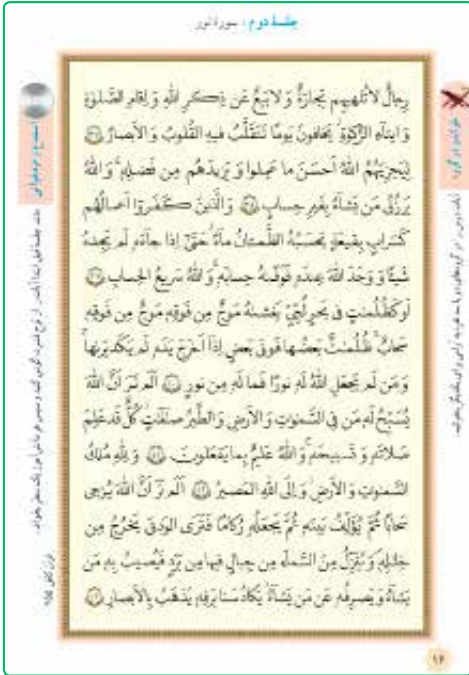 جلسهٔ دوم : سورهٔ نور
رِجالٌ لاتُلهیهِم تِجارَةٌ وَ لابَیعٌ عَن ذِکرِ اللهِ وَ اِقامِ الصَّلوٰةِ
وَ ایتاءِ الزَّکوٰةِ یَخافونَ یَومًا تَتَقَلَّبُ فیهِ القُلوبُ وَ الاَبصارُ
لِیَجزِیَهُمُ اللهُ اَحسَنَ ما عَمِلوا وَ یَزیدَهُم مِن فَضلِهِ وَ اللهُ
یَرزُقُ مَن یَشآءُ بِغَیرِ حِسابٍ وَ الَّذینَ کَفَروا اَعمالُهُم
کَسَرابٍ بِقیعَةٍ یَحسَبُهُ الظَّمئانُ مآءً حَتّیٰ اِذا جآءَهُ لَم یَجِدهُ
شَیئًا وَ وَجَدَ اللهَ عِندَهُ فَوَفّاهُ حِسابَهُ وَ اللهُ سَریعُ الحِسابِ
اَو کَظُلُماتٍ فی بَحرٍ لُجِّیٍّ یَغشاهُ مَوجٌ مِن فَوقِهِ مَوجٌ مِن فَوقِهِ
سَحابٌ ظُلُماتٌ بَعضُها فَوقَ بَعضٍ اِذا اَخرَجَ یَدَهُ لَم یَکَد یَراها
وَ مَن لَم یَجعَلِ اللهُ لَهُ نورًا فَما لَهُ مِن نورٍ اَلَم تَرَ اَنَّ اللهَ
یُسَبِّحُ لَهُ مَن فِی السَّماواتِ وَ الاَرضِ وَ الطَّیرُ صآفّاتٍ کُلٌّ قَد عَلِمَ
صَلاتَهُ وَ تَسبیحَهُ وَ اللهُ عَلیمٌ بِما یَفعَلونَ وَ لِلّهِ مُلکُ
السَّماواتِ وَ الاَرضِ وَ اِلَی اللهِ المَصیرُ اَلَم تَرَ اَنَّ اللهَ یُزجی
سَحابًا ثُمَّ یُؤَلِّفُ بَینَهُ ثُمَّ یَجعَلُهُ رُکامًا فَتَرَی الوَدقَ یَخرُجُ مِن
خِلالِهِ وَ یُنَزِّلُ مِنَ السَّمآءِ مِن جِبالٍ فیها مِن بَرَدٍ فَیُصیبُ بِهِ مَن
یَشآءُ وَ یَصرِفُهُ عَن مَن یَشآءُ یَکادُ سَنا بَرقِهِ یَذهَبُ بِالاَبصارِ